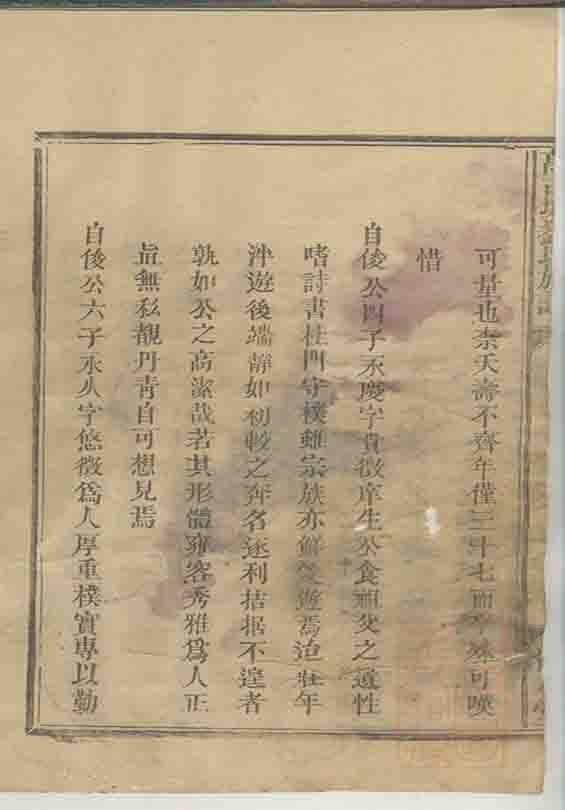 可量也柰夭壽不齊年僅三十七而卒殊可嘆
惜
自俊公四子永慶字貴徵庠生公食祖父之遺性
嗜詩書杜門守樸雖宗族亦鮮交遊焉迨壯年
泮遊後端靜如初較之奔名逐利拮据不遑者
孰如公之高潔哉若其形體雍容秀雅爲人正
直無私覩丹青自可想見焉
自俊公六子永久字悠徵爲人厚重樸實專以勤